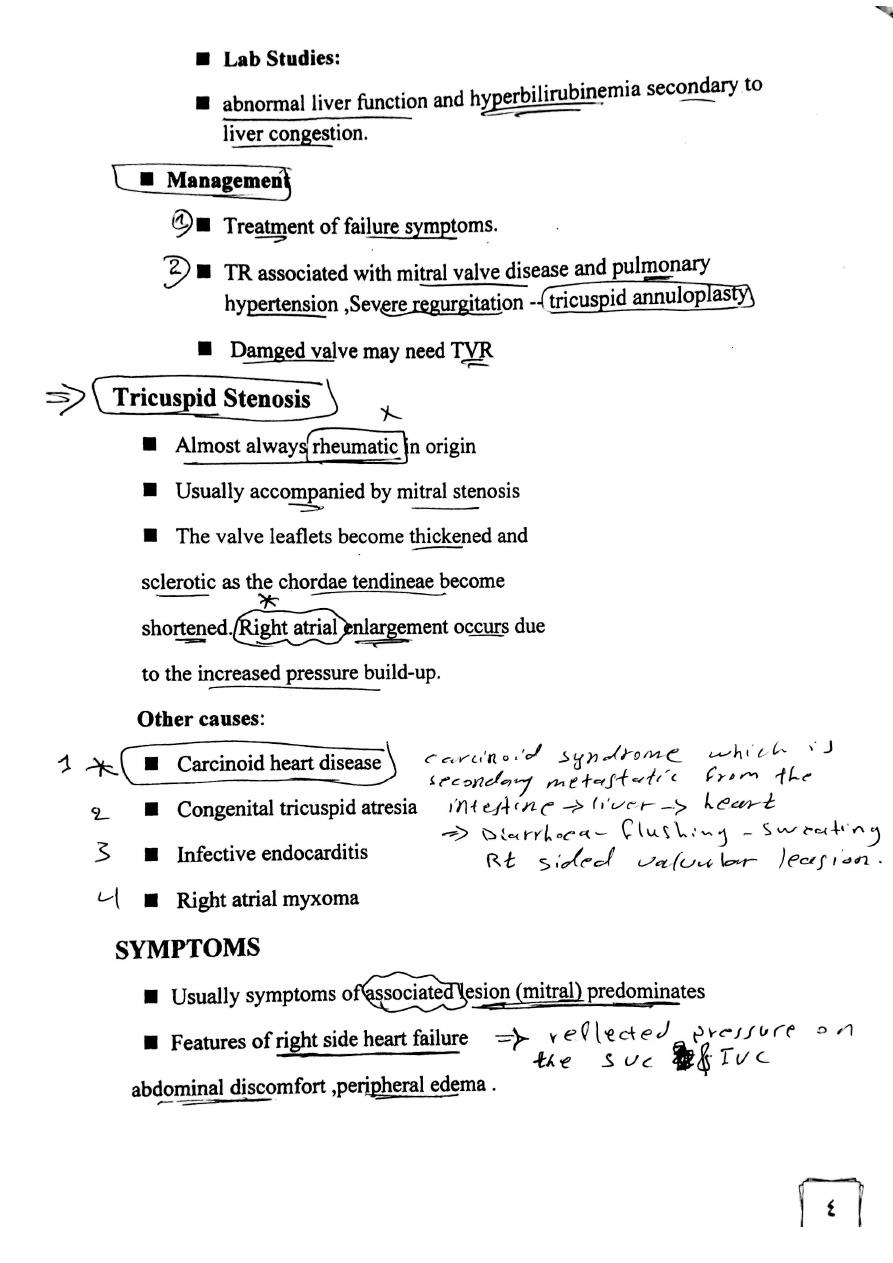 ■ Lab Studies:
■ abnormal liver function and hyperbilirubinemia secondary to
liver congestion.
■ Management
1 ■ Treatment of failure symptoms.
2 ■ TR associated with mitral valve disease and pulmonary
hypertension ,Severe regurgitation -- tricuspid annuloplasty
■ Damged valve may need TVR
⇒ Tricuspid Stenosis
■ Almost always rheumatic in origin
■ Usually accompanied by mitral stenosis
■ The valve leaflets become thickened and
sclerotic as the chordae tendineae become
shortened. Right atrial enlargement occurs due
to the increased pressure build-up.
Other causes:
1 * ■ Carcinoid heart disease
carcinoid syndrome which is
secondary metastatic from the
2 ■ Congenital tricuspid atresia
intestine → liver → heart
⇒ Diarrhoea - flushing - sweating
3 ■ Infective endocarditis
Rt sided valvular leasion.
4 ■ Right atrial myxoma
SYMPTOMS
■ Usually symptoms of associated lesion (mitral) predominates
■ Features of right side heart failure ⇒ reflected pressure on
the SVC & IVC
abdominal discomfort ,peripheral edema .
٤